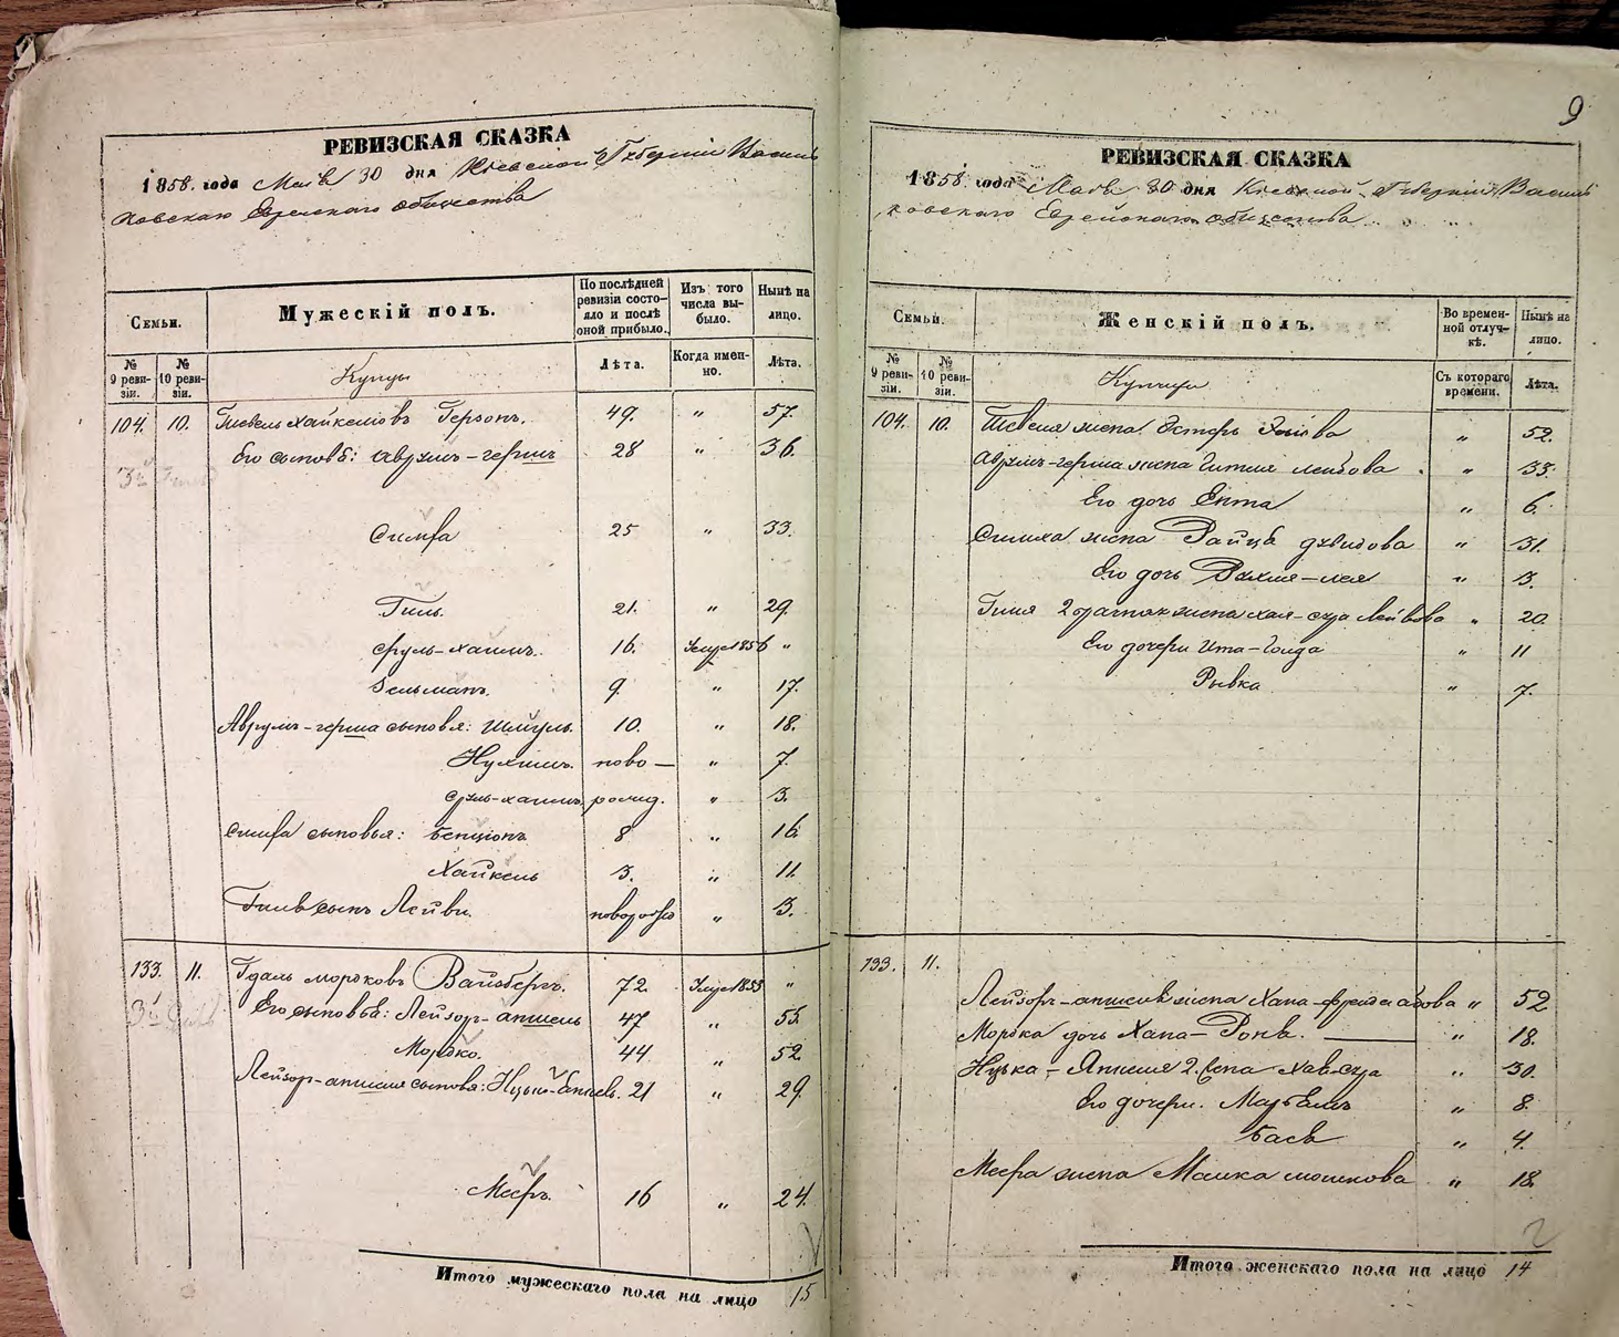 РЕВИЗСКАЯ СКАЗКА
1858. года Маія 30 дня Кіевской Губерніи Василь
ковскаго Еврейскаго общества
Семьи.
Мужескій полъ.
По послѣдней ревизіи состо-
яло и послѣ оной прибыло.
Изъ того числа вы-
было.
Нынѣ на лицо.
№ 9 реви-
зіи.
№ 10 реви-
зіи.
Купцы
Лѣта.
Когда имен-
но.
Лѣта.
104. 10. Тевель Хайкелювъ Герзонъ. 49. " 57.
Его сыновья: Аврумъ-гершъ 28 " 36.
Симха 25 " 33.
Гиль. 21. " 29.
Сруль-хаимъ. 16. 1856 "
Зельманъ. 9. " 17.
Аврумъ-герша сыновья: Шмуль. 10. " 18.
Нухимъ. ново— " 7.
Сруль-хаимъ. рожд. " 3.
Симха сыновья: Бенціонъ 8 " 16.
Хайкель 3. " 11.
Гиля сынъ Лейви. " 3.
133. 11. Гдаль Мордковъ Вайсбергъ. 72. 1853 "
Его сыновья: Лейзоръ-аншель 47 " 55.
Мордко. 44 " 52
Лейзоръ-аншеля сыновья: 21 " 29.
Мееръ. 16 " 24.
Итого мужескаго пола на лицо 15
9
РЕВИЗСКАЯ СКАЗКА
1858. года Маія 30 дня Кіевской Губерніи Василь
ковскаго Еврейскаго общества
Семьи.
Женскій полъ.
Во времен-
ной отлуч-
кѣ.
Нынѣ на лицо.
№ 9 реви-
зіи.
№ 10 реви-
зіи.
Съ котораго времени.
Лѣта.
104. 10. Тевеля жена Эстеръ " 52.
Аврумъ-герша жена Гитля Лейбова " 33.
Его дочь Ента " 6.
Симха жена Райца Дувидова " 31.
Его дочь Рухля-лея " 3.
Гиля 2 бракомъ жена Хая-сура Лейбова " 20.
Его дочери Ита-Голда " 11
Рывка " 7.
133. 11.
Лейзоръ-аншеля жена Хана-фрейда " 52
Мордка дочь Хана-Роня. " 18.
2. жена Хая-сура " 30.
Его дочери. " 8.
Бася " 4.
Меера жена Малка Мошкова " 18.
Итого женскаго пола на лицо 14